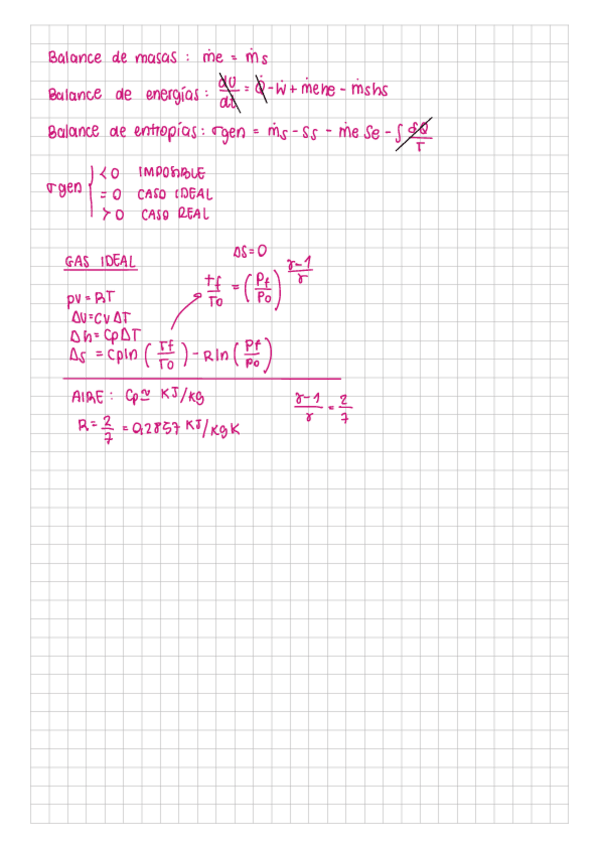 Balance de masas : ṁe = ṁs
Balance de energías : dU/dt = Q̇ - Ẇ + ṁehe - ṁshs
Balance de entropías : σgen = ṁs - Ss - ṁe Se - ∫ dQ/T
σgen { < 0 IMPOSIBLE
= 0 CASO IDEAL
> 0 CASO REAL
GAS IDEAL
ΔS = 0
Tf/To = (Pf/Po)^(γ-1/γ)
pv = RT
ΔU = CV ΔT
Δh = Cp ΔT
Δs = Cp ln (Tf/To) - R ln (Pf/Po)
AIRE : Cp ≃ KJ/kg
γ-1/γ = 2/7
R = 2/7 = 0,2857 KJ/kg K